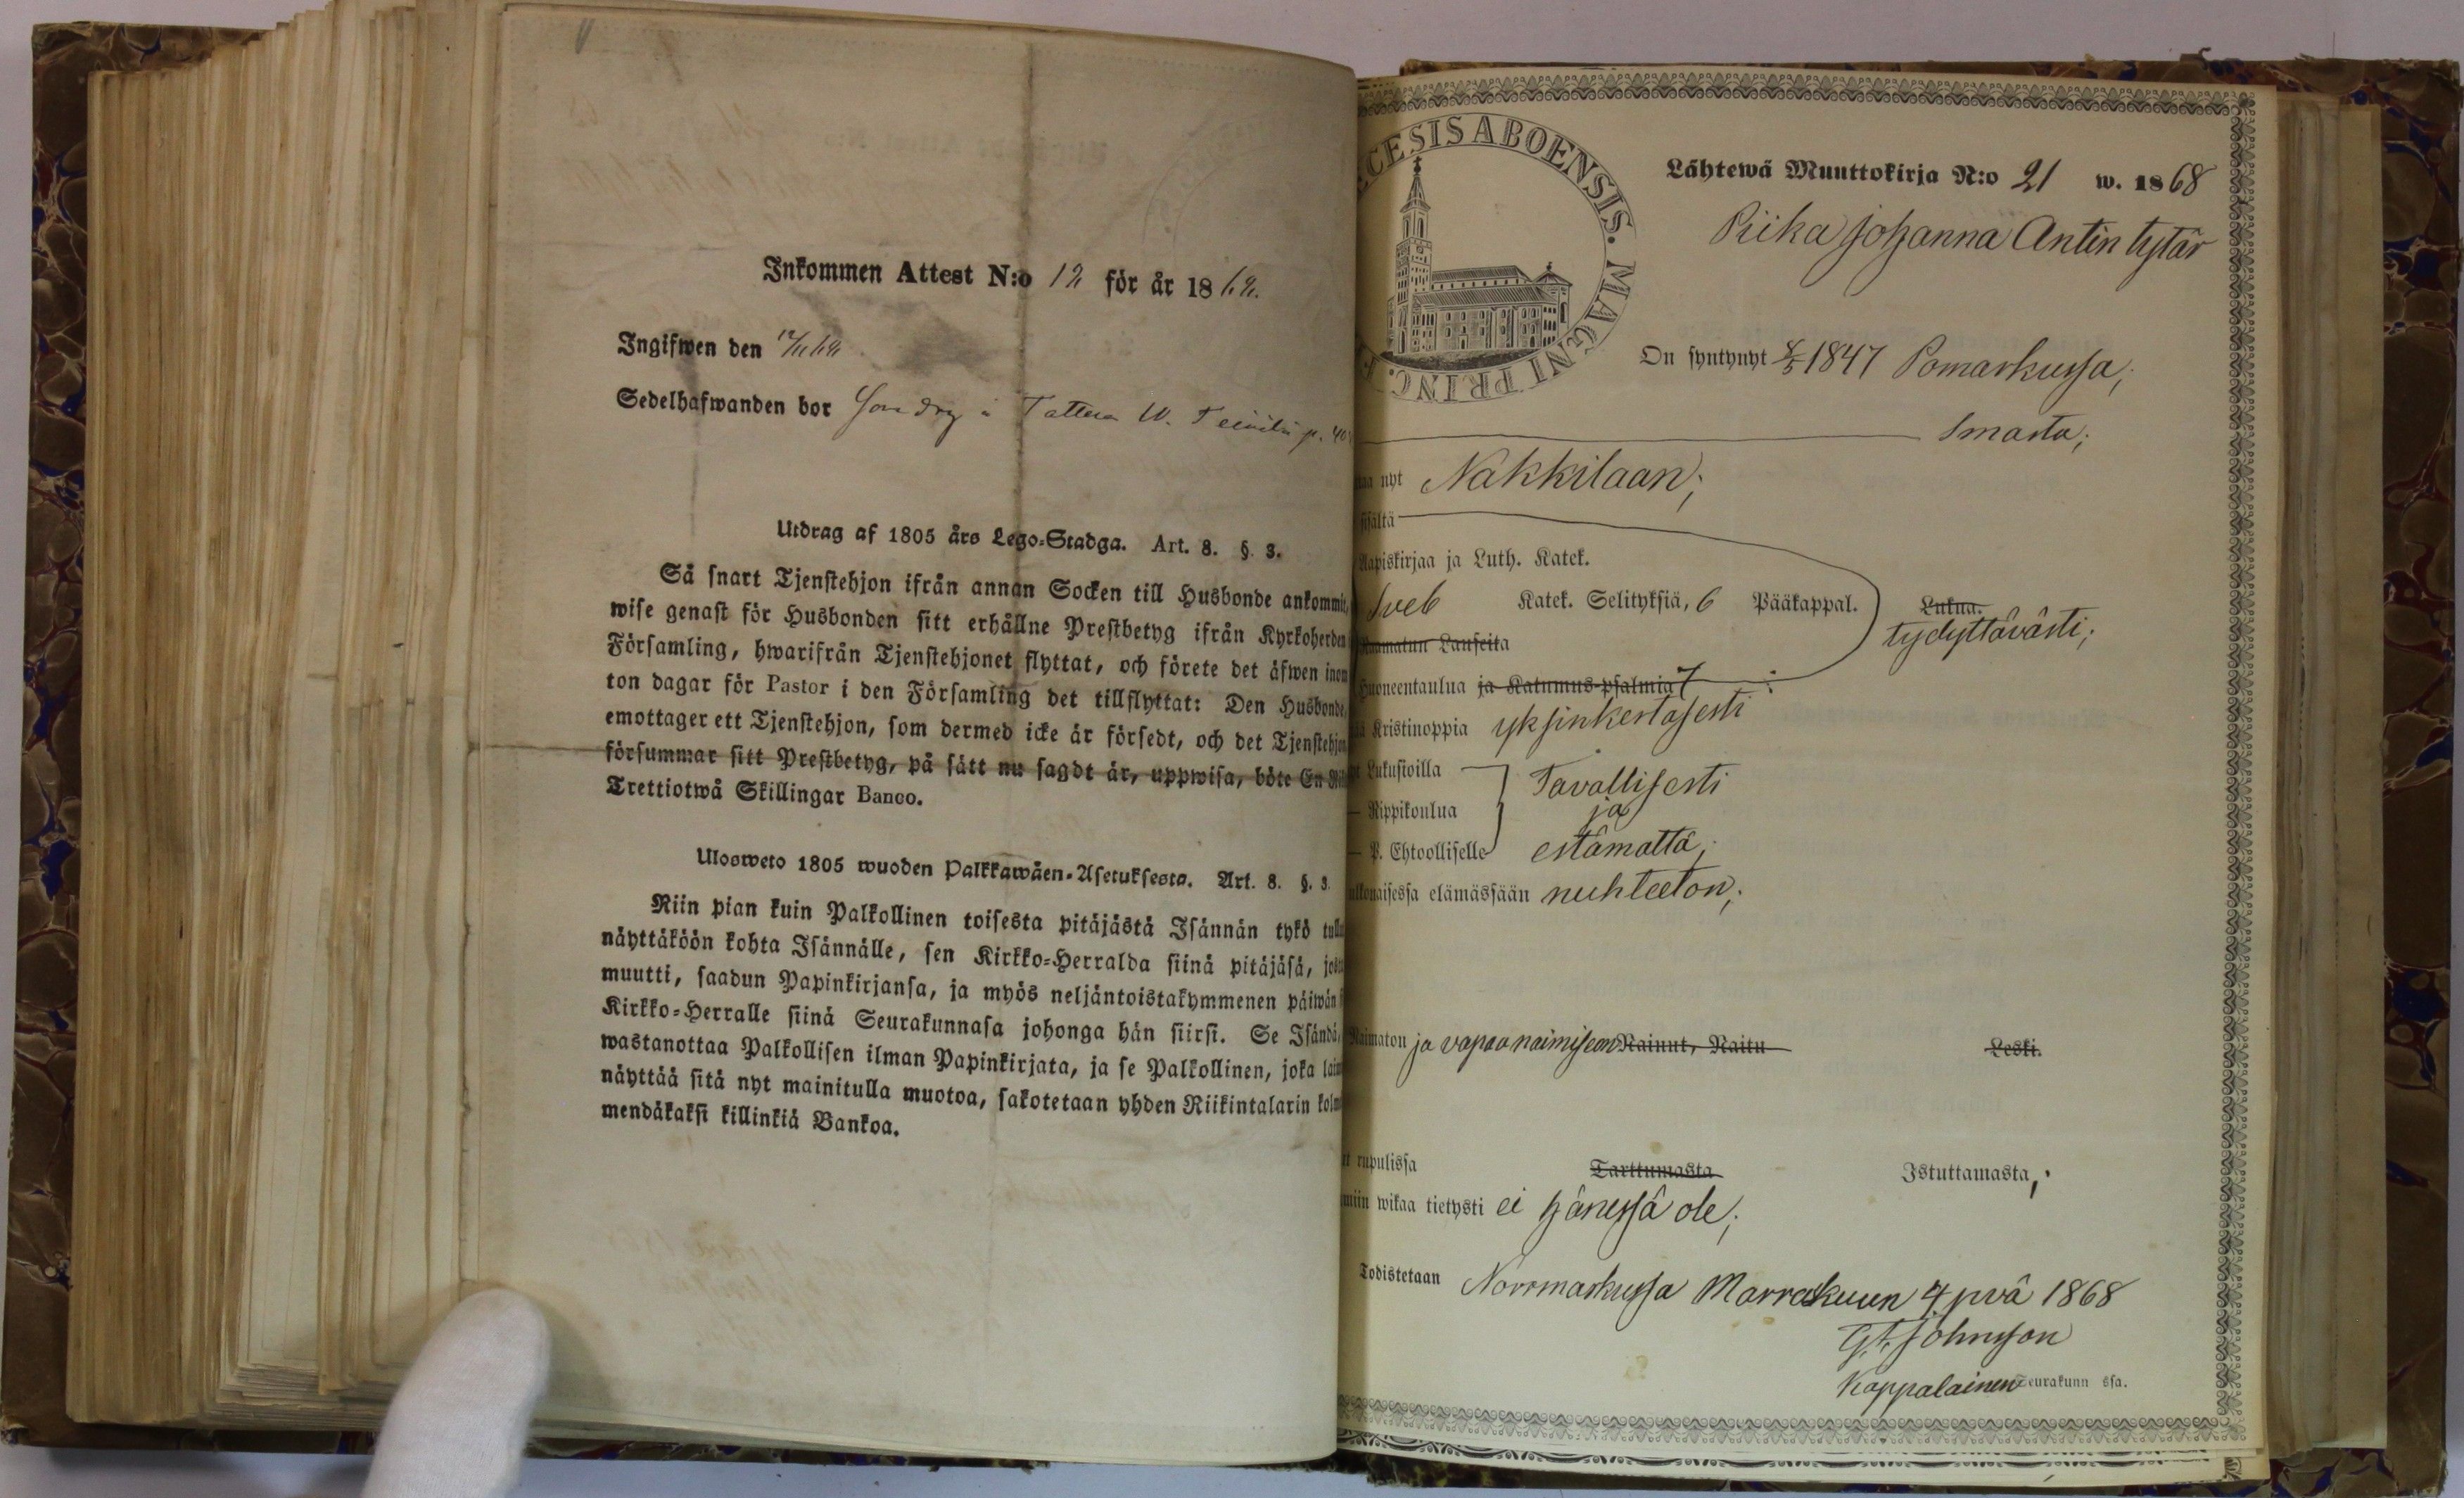 Inkommen Attest N:o 12 för år 18
Ingifwen den
Sedelhafwanden bor
Utdrag af 1805 års Lego-Stadga. Art. 8. §. 3.
Så snart Tjenstehjon ifrån annan Socken till Husbonde ankommit,
wise genast för Husbonden sitt erhållne Prestbetyg ifrån Kyrkoherden
Församling, hwarifrån Tjenstehjonet flyttat, och förete det äfwen inom
ton dagar för Pastor i den Församling det tillflyttat: Den Husbonde,
emottager ett Tjenstehjon, som dermed icke är försedt, och det Tjenstehjon
försummar sitt Prestbetyg, på sätt nu sagdt är, uppwisa, böte En
Trettiotwå Skillingar Banco.
Ulosweto 1805 wuoden Palkkawäen-Asetuksesta. Art. 8. §. 3
Niin pian kuin Palkollinen toisesta pitäjästä Isännän tykö
näyttäköön kohta Isännälle, sen Kirkko-Herralda siinä pitäjäsä,
muutti, saadun Papinkirjansa, ja myös neljäntoistakymmenen päiwän
Kirkko-Herralle siinä Seurakunnasa johonga hän siirsi. Se Isändä,
wastanottaa Palkollisen ilman Papinkirjata, ja se Palkollinen, joka
näyttää sitä nyt mainitulla muotoa, sakotetaan yhden Riikintalarin
mendäkaksi killinkiä Bankoa.
CESIS ABOENSIS. MAGNI PRINC.
Lähtewä Muuttokirja N:o 21 w. 1868
Piika Johanna Antin tytär
On syntynyt 1847 Pomarkussa;
Smasta;
nyt Nakkilaan;
sisältä
Aapiskirjaa ja Luth. Katek.
Sveb Katek. Selityksiä, 6 Pääkappal. Lukua.
tydyttävästi;
Lauseita
Huoneentaulua ja Katumus-psalmia 7
Kristinoppia yksinkertasesti
Lukusioilla Tavallisesti
Rippikoulua ja
P. Ehtoolliselle estämättä;
elämässään nuhteeton;
Naimaton ja vapaa naimiseen Nainut, Naitu Leski.
rupulissa Tarttumasta Istuttamasta,
wikaa tietysti ei hänessä ole;
Todistetaan Norrmarkussa Marraskuun 4 pvä 1868
Johnsson
Kappalainen Seurakunn ssa.